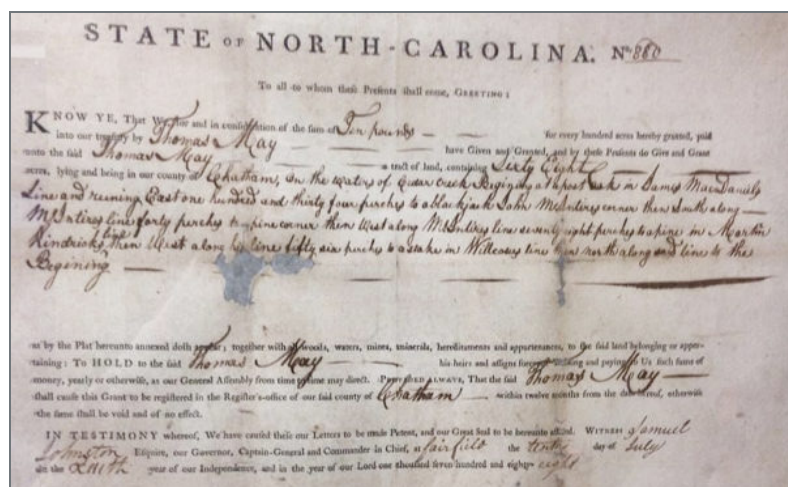 STATE OF NORTH-CAROLINA. No. 860
To all to whom these Presents shall come, GREETING:
KNOW YE, That We for and in consideration of the sum of Ten pounds for every hundred acres hereby granted, paid
into our treasury by Thomas May have Given and Granted, and by these Presents do Give and Grant
unto the said Thomas May a tract of land, containing Sixty Eight
acres, lying and being in our county of Chatham, on the waters of Cedar Creek Begining at a post oak in James MacDaniels
Line and runing East one hundred and thirty four perches to a blackjack John McIntires corner then South along
McIntires line forty perches to a pine corner then West along McIntires line seventy eight perches to a pine in Martin
Kindricks line then West along his line fifty six perches to a stake in line then north along said line to the
Begining
as by the Plat hereunto annexed doth appear; together with all woods, waters, mines, minerals, hereditaments and appurtenances, to the said land belonging or apper-
taining: To HOLD to the said Thomas May his heirs and assigns forever. Yielding and paying to Us such sums of
money, yearly or otherwise, as our General Assembly from time to time may direct. PROVIDED ALWAYS, That the said Thomas May
shall cause this Grant to be registered in the Register's-office of our said county of Chatham within twelve months from the date hereof, otherwise
the same shall be void and of no effect.
IN TESTIMONY whereof, We have caused these our Letters to be made Patent, and our Great Seal to be hereunto affixed. WITNESS Samuel
Johnston Esquire, our Governor, Captain-General and Commander in Chief, at fairfield the tenth day of July
in the year of our Independence, and in the year of our Lord one thousand seven hundred and eighty eight